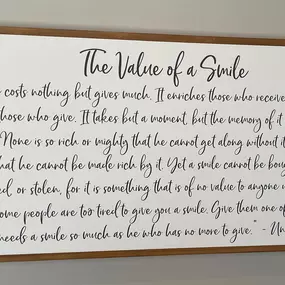 The Value of a Smile
costs nothing but gives much. It enriches those who receive
those who give. It takes but a moment, but the memory of it
None is so rich or mighty that he cannot get along without it
that he cannot be made rich by it. Yet a smile cannot be
or stolen, for it is something that is of no value to anyone
some people are too tired to give you a smile. Give them one of
needs a smile so much as he who has no more to give." -